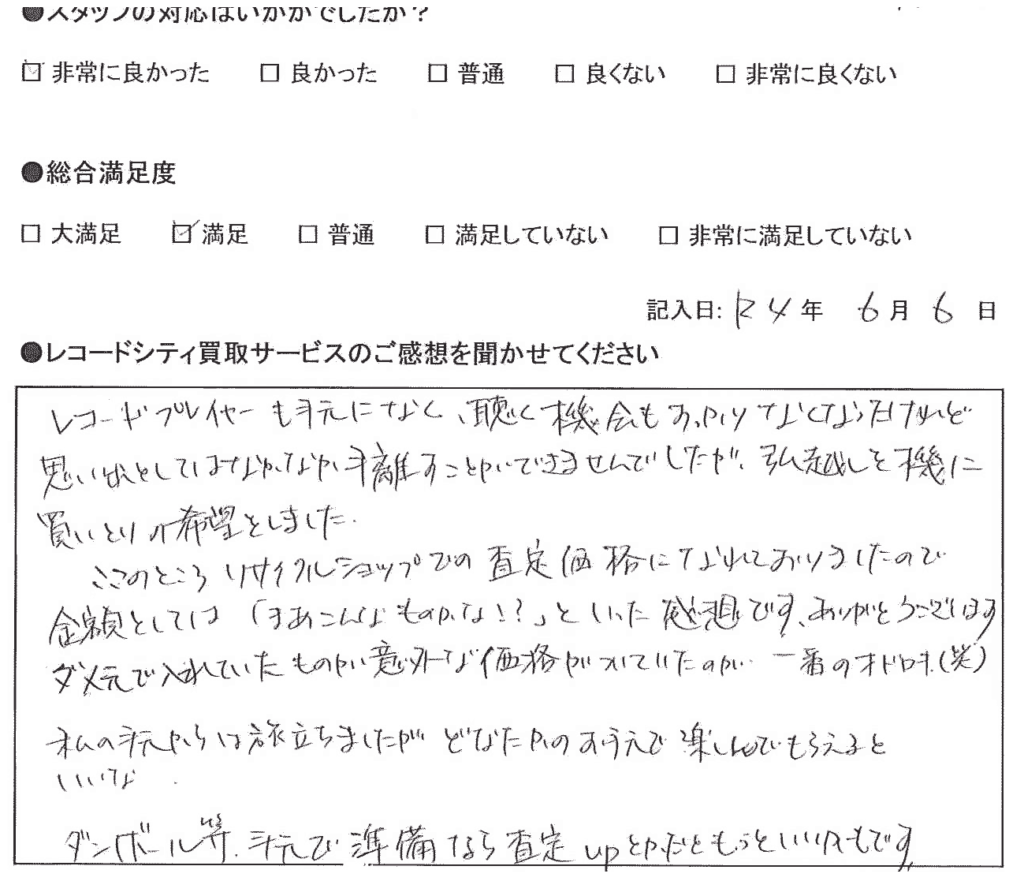 ●スタッフの対応はいかがでしたか?
☑ 非常に良かった □ 良かった □ 普通 □ 良くない □ 非常に良くない
●総合満足度
□ 大満足 ☑ 満足 □ 普通 □ 満足していない □ 非常に満足していない
記入日: R4年 6月 6日
●レコードシティ買取サービスのご感想を聞かせてください
レコードプレイヤーも手元になく、聴く機会もすっかりなくなったけれど
思い出としてはなかなか手離すことができませんでしたが、引越しを機に
買いとり希望をしました.
ここのところ リサイクルショップでの査定価格になれておりましたので
金額としては「まあこんなものかな!?」といった感想です、ありがとうございます
ダメ元で入れていたものが意外な価格がついていたのが 一番のオドロキ.(笑)
私の手元からは旅立ちましたが どなたかのおうちで楽しんでもらえると
いいな.
ダンボール等.手元で準備なら査定upとかだともっといいかもです